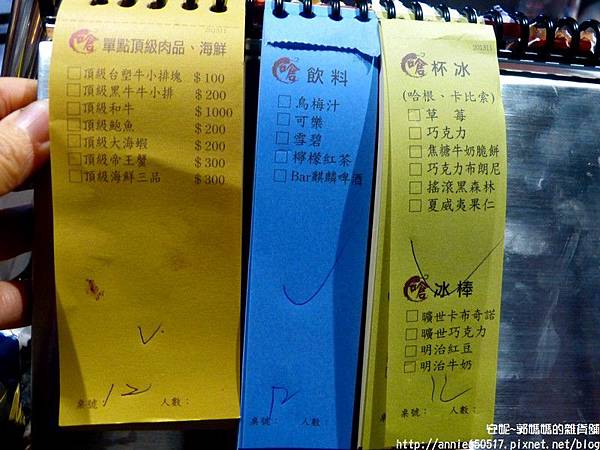 嗆 單點頂級肉品、海鮮
□頂級台塑牛小排塊 $100
□頂級黑牛牛小排 $200
□頂級和牛 $1000
□頂級鮑魚 $200
□頂級大海蝦 $200
□頂級帝王蟹 $300
□頂級海鮮三品 $300
桌號: 12 人數:
嗆 飲料
□烏梅汁
□可樂
□雪碧
□檸檬紅茶
□Bar麒麟啤酒
桌號: 12 人數:
嗆 杯冰
(哈根、卡比索)
□草 莓
□巧克力
□焦糖牛奶脆餅
□巧克力布朗尼
□搖滾黑森林
□夏威夷果仁
嗆 冰棒
□曠世卡布奇諾
□曠世巧克力
□明治紅豆
□明治牛奶
桌號: 12 人數:
安妮~郭媽媽的雜貨舖
http://annie660517.pixnet.net/blog